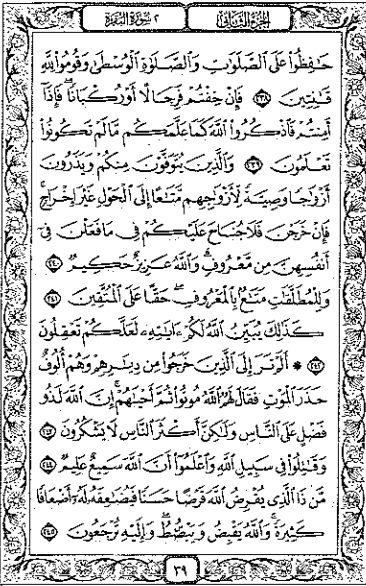 الجزء الثاني ٢ سورة البقرة
حَـٰفِظُوا۟ عَلَى ٱلصَّلَوَٰتِ وَٱلصَّلَوٰةِ ٱلْوُسْطَىٰ وَقُومُوا۟ لِلَّهِ
قَـٰنِتِينَ ٢٣٨ فَإِنْ خِفْتُمْ فَرِجَالًا أَوْ رُكْبَانًا ۖ فَإِذَآ
أَمِنتُمْ فَٱذْكُرُوا۟ ٱللَّهَ كَمَا عَلَّمَكُم مَّا لَمْ تَكُونُوا۟
تَعْلَمُونَ ٢٣٩ وَٱلَّذِينَ يُتَوَفَّوْنَ مِنكُمْ وَيَذَرُونَ
أَزْوَٰجًا وَصِيَّةً لِّأَزْوَٰجِهِم مَّتَـٰعًا إِلَى ٱلْحَوْلِ غَيْرَ إِخْرَاجٍ ۚ
فَإِنْ خَرَجْنَ فَلَا جُنَاحَ عَلَيْكُمْ فِى مَا فَعَلْنَ فِىٓ
أَنفُسِهِنَّ مِن مَّعْرُوفٍ ۗ وَٱللَّهُ عَزِيزٌ حَكِيمٌ ٢٤٠
وَلِلْمُطَلَّقَـٰتِ مَتَـٰعٌۢ بِٱلْمَعْرُوفِ ۖ حَقًّا عَلَى ٱلْمُتَّقِينَ ٢٤١
كَذَٰلِكَ يُبَيِّنُ ٱللَّهُ لَكُمْ ءَايَـٰتِهِۦ لَعَلَّكُمْ تَعْقِلُونَ
٢٤٢ ۞ أَلَمْ تَرَ إِلَى ٱلَّذِينَ خَرَجُوا۟ مِن دِيَـٰرِهِمْ وَهُمْ أُلُوفٌ
حَذَرَ ٱلْمَوْتِ فَقَالَ لَهُمُ ٱللَّهُ مُوتُوا۟ ثُمَّ أَحْيَـٰهُمْ ۚ إِنَّ ٱللَّهَ لَذُو
فَضْلٍ عَلَى ٱلنَّاسِ وَلَـٰكِنَّ أَكْثَرَ ٱلنَّاسِ لَا يَشْكُرُونَ ٢٤٣
وَقَـٰتِلُوا۟ فِى سَبِيلِ ٱللَّهِ وَٱعْلَمُوٓا۟ أَنَّ ٱللَّهَ سَمِيعٌ عَلِيمٌ ٢٤٤
مَّن ذَا ٱلَّذِى يُقْرِضُ ٱللَّهَ قَرْضًا حَسَنًا فَيُضَـٰعِفَهُۥ لَهُۥٓ أَضْعَافًا
كَثِيرَةً ۚ وَٱللَّهُ يَقْبِضُ وَيَبْصُۜطُ وَإِلَيْهِ تُرْجَعُونَ ٢٤٥
٣٩